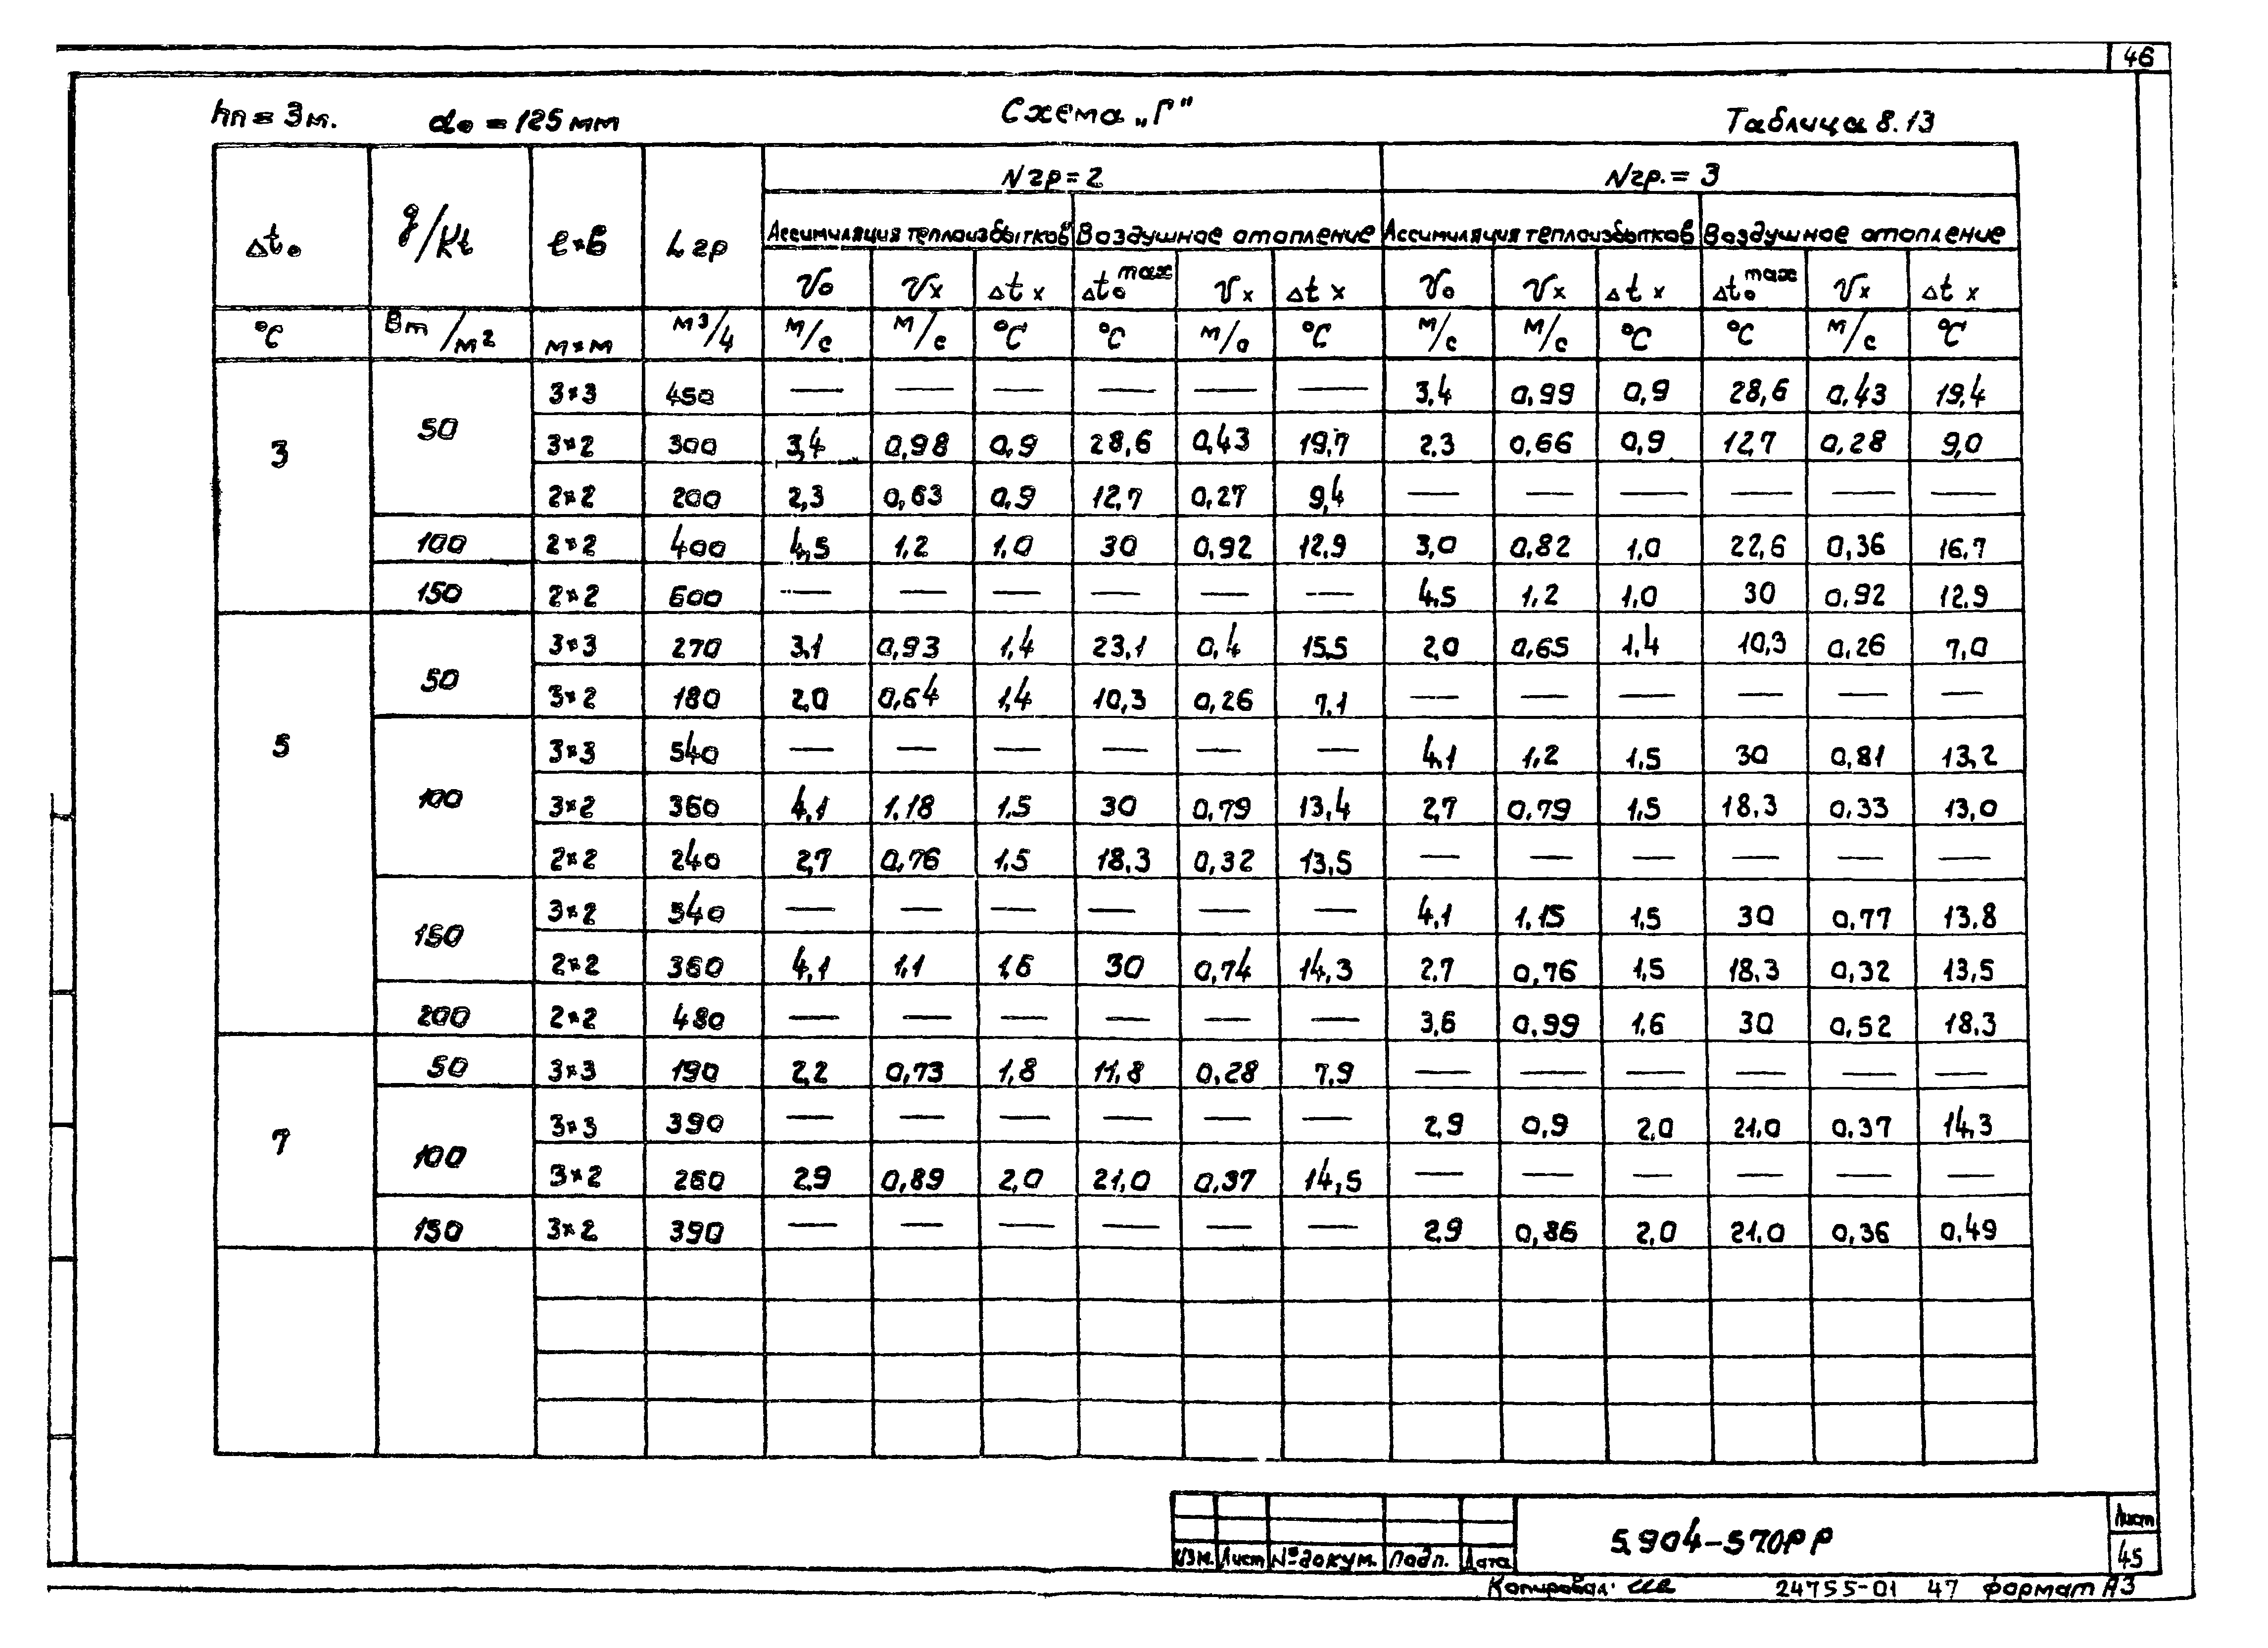 46
hп = 3м. d₀ = 125 мм Схема „Г" Таблица 8.13
Nгр = 2 Nгр. = 3
Δt₀ q/Kt ℓ×b Lгр Ассимиляция теплоизбытков Воздушное отопление Ассимиляция теплоизбытков Воздушное отопление
V₀ Vx Δtx Δt₀max Vx Δtx V₀ Vx Δtx Δt₀max Vx Δtx
°C Вт/м² м×м м³/ч м/с м/с °C °C м/с °C м/с м/с °C °C м/с °C
3 50 3×3 450 — — — — — — 3,4 0,99 0,9 28,6 0,43 19,4
3×2 300 3,4 0,98 0,9 28,6 0,43 19,7 2,3 0,66 0,9 12,7 0,28 9,0
2×2 200 2,3 0,63 0,9 12,7 0,27 9,4 — — — — — —
100 2×2 400 4,5 1,2 1,0 30 0,92 12,9 3,0 0,82 1,0 22,6 0,36 16,7
150 2×2 600 — — — — — — 4,5 1,2 1,0 30 0,92 12,9
5 50 3×3 270 3,1 0,93 1,4 23,1 0,4 15,5 2,0 0,65 1,4 10,3 0,26 7,0
3×2 180 2,0 0,64 1,4 10,3 0,26 7,1 — — — — — —
100 3×3 540 — — — — — — 4,1 1,2 1,5 30 0,81 13,2
3×2 360 4,1 1,18 1,5 30 0,79 13,4 2,7 0,79 1,5 18,3 0,33 13,0
2×2 240 2,7 0,76 1,5 18,3 0,32 13,5 — — — — — —
150 3×2 540 — — — — — — 4,1 1,15 1,5 30 0,77 13,8
2×2 360 4,1 1,1 1,6 30 0,74 14,3 2,7 0,76 1,5 18,3 0,32 13,5
200 2×2 480 — — — — — — 3,6 0,99 1,6 30 0,52 18,3
7 50 3×3 190 2,2 0,73 1,8 11,8 0,28 7,9 — — — — — —
100 3×3 390 — — — — — — 2,9 0,9 2,0 21,0 0,37 14,3
3×2 260 2,9 0,89 2,0 21,0 0,37 14,5 — — — — — —
150 3×2 390 — — — — — — 2,9 0,86 2,0 21,0 0,36 0,49
Изм. Лист № докум. Подп. Дата 5.904-57.0РР Лист
45
Копировал: 24755-01 47 формат А3